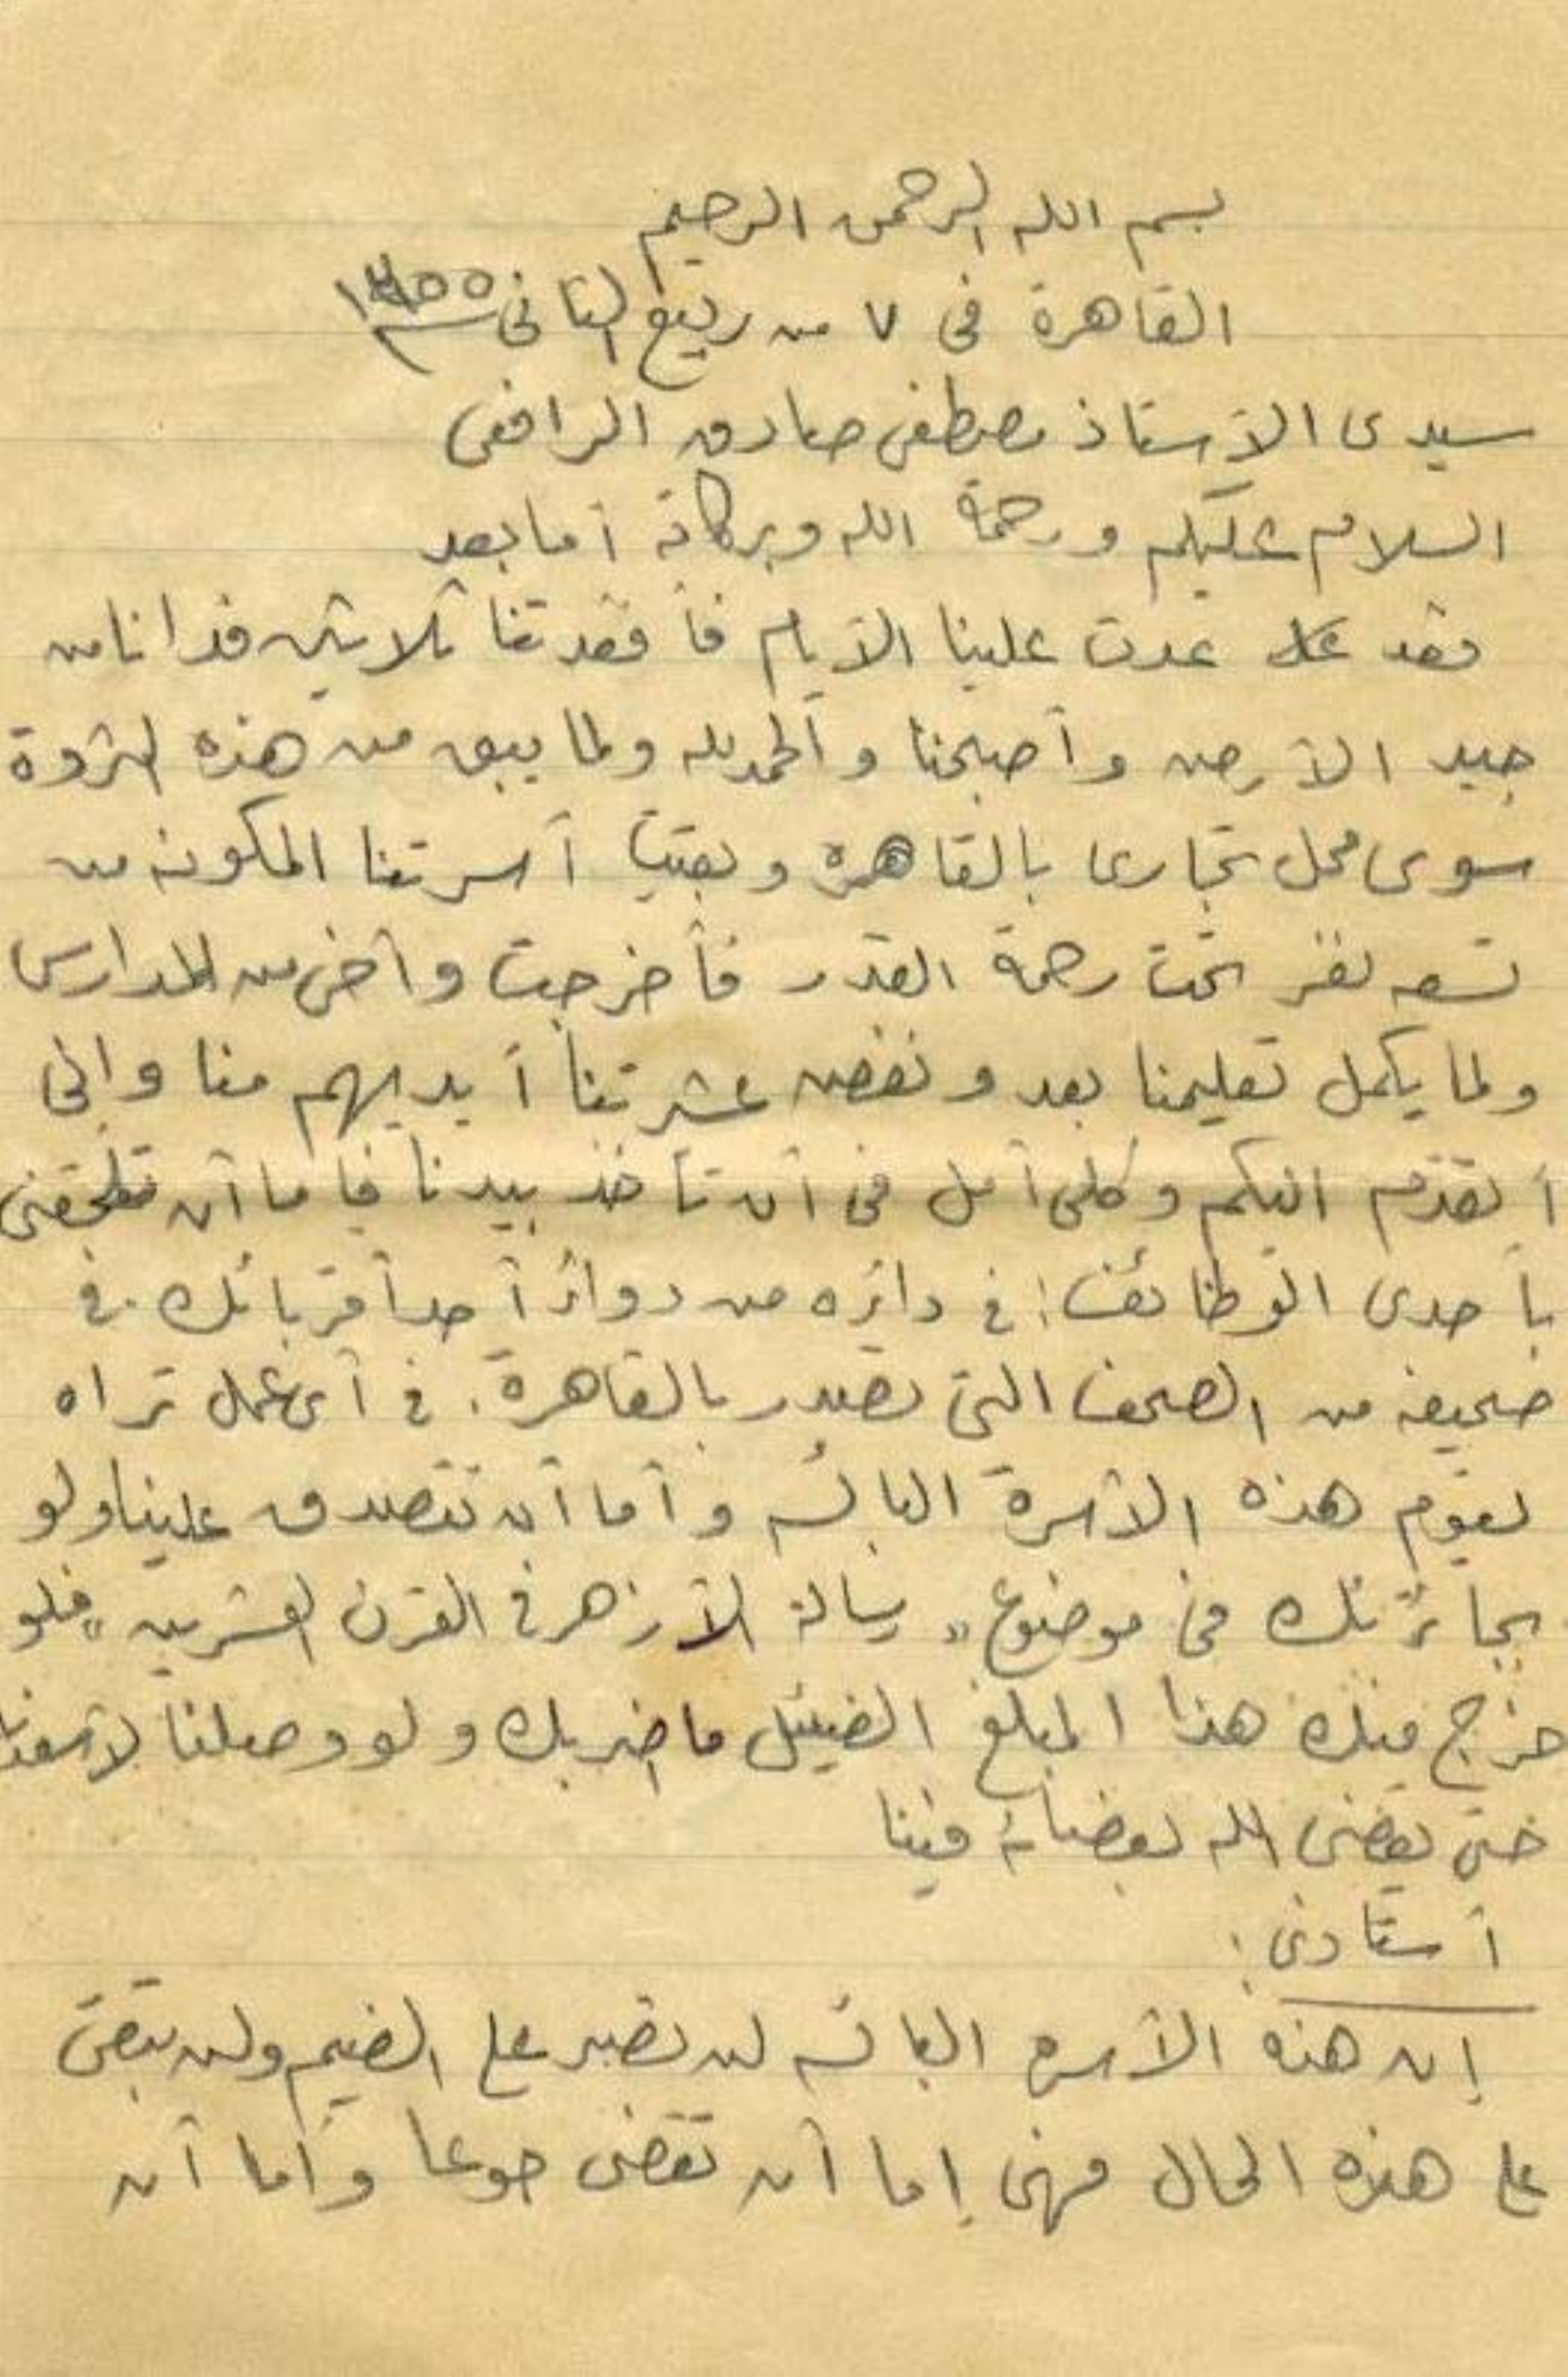 بسم الله الرحمن الرحيم
القاهرة فى ٧ من ربيع الثانى سنة ١٣٥٥
سيدى الأستاذ مصطفى صادق الرافعى
السلام عليكم ورحمة الله وبركاته أما بعد
فقد عدت علينا الأيام فأفقدتنا ثلاثين فدانا من
جيد الأرض وأصبحنا والحمد لله ولما يبق من هذه الثروة
سوى محل تجارى بالقاهرة وبقيت أسرتنا المكونه من
تسعه نفر تحت رحمة القدر فأخرجت وأخى من المدارس
ولما يكمل تعليمنا بعد ونفض عشرتنا أيديهم منا وانى
أتقدم اليكم وكلى أمل فى أن تأخذ بيدنا فاما أن تلحقنى
بأحدى الوظائف: فى دائره من دوائر أحد أقربائك. فى
صحيفه من الصحف التى تصدر بالقاهرة. فى أى عمل تراه
يقوم هذه الأسرة البائسه وأما أن تتصدق علينا ولو
بجائزتك فى موضوع "رسالة الأزهر فى القرن العشرين" فلو
خرج منك هذا المبلغ الضئيل ما اضر بك ولو وصلنا لأسعدنا
حتى يقضى الله بقضائه فينا
أستاذى:
إن هذه الأسره البائسه لن تصبر على الضيم ولن تبقى
على هذه الحال فهى إما أن تقضى جوعا وأما أن